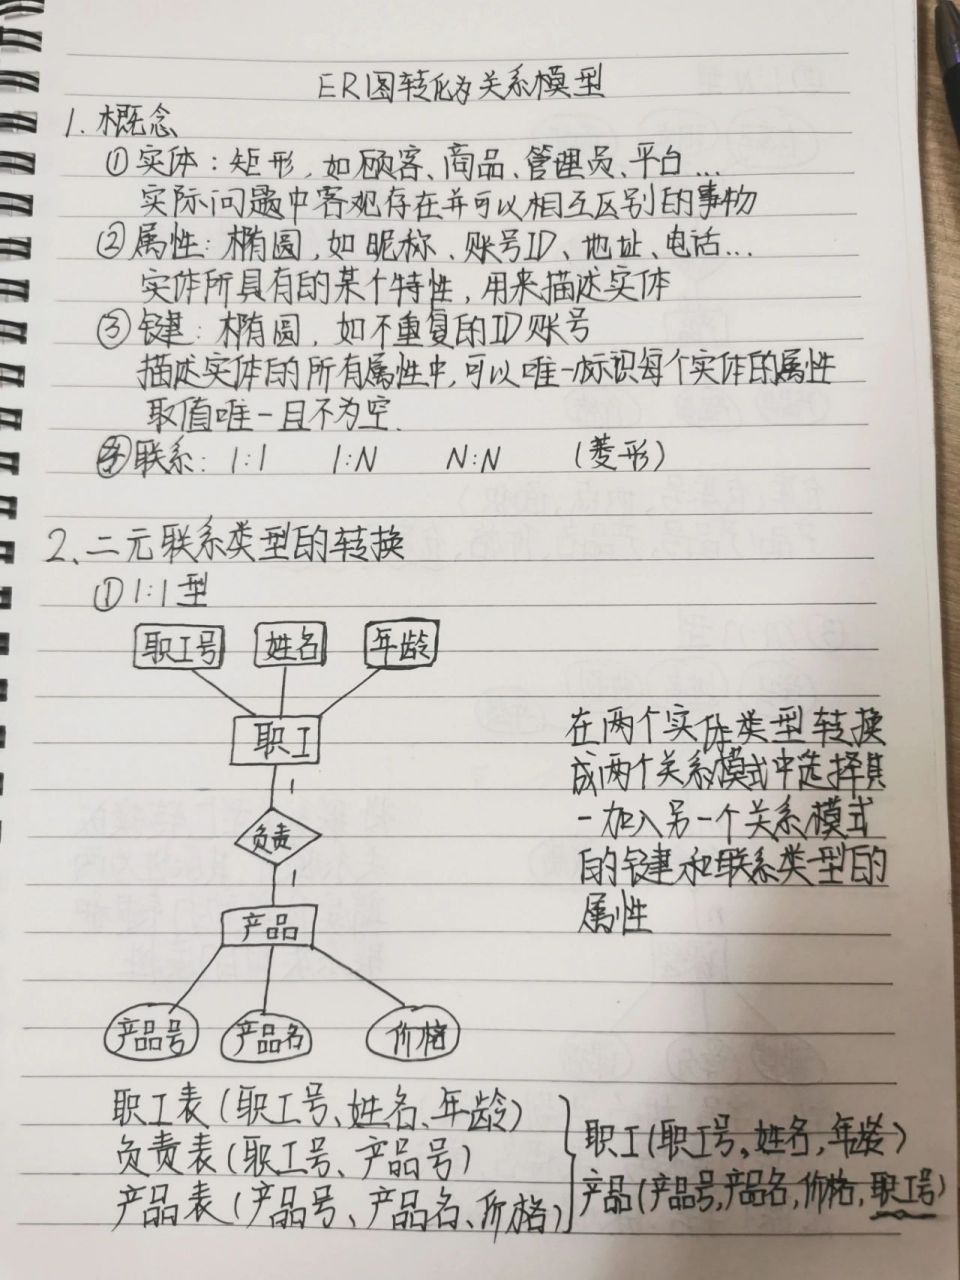 ER图转化为关系模型
1.概念
①实体：矩形，如顾客、商品、管理员、平台...
实际问题中客观存在并可以相互区别的事物
②属性：椭圆，如昵称、账号ID、地址、电话...
实体所具有的某个特性，用来描述实体
③键：椭圆，如不重复的ID账号
描述实体的所有属性中，可以唯一标识每个实体的属性
取值唯一且不为空.
④联系：1:1 1:N N:N （菱形）
2、二元联系类型的转换
①1:1型
职工号 姓名 年龄
职工
1
负责
1
产品
产品号 产品名 价格
在两个实体类型转换
成两个关系模式中选择其
一加入另一个关系模式
的键和联系类型的
属性
职工表（职工号、姓名、年龄）
负责表（职工号、产品号）
产品表（产品号、产品名、价格）
职工（职工号，姓名，年龄）
产品（产品号，产品名，价格，职工号）